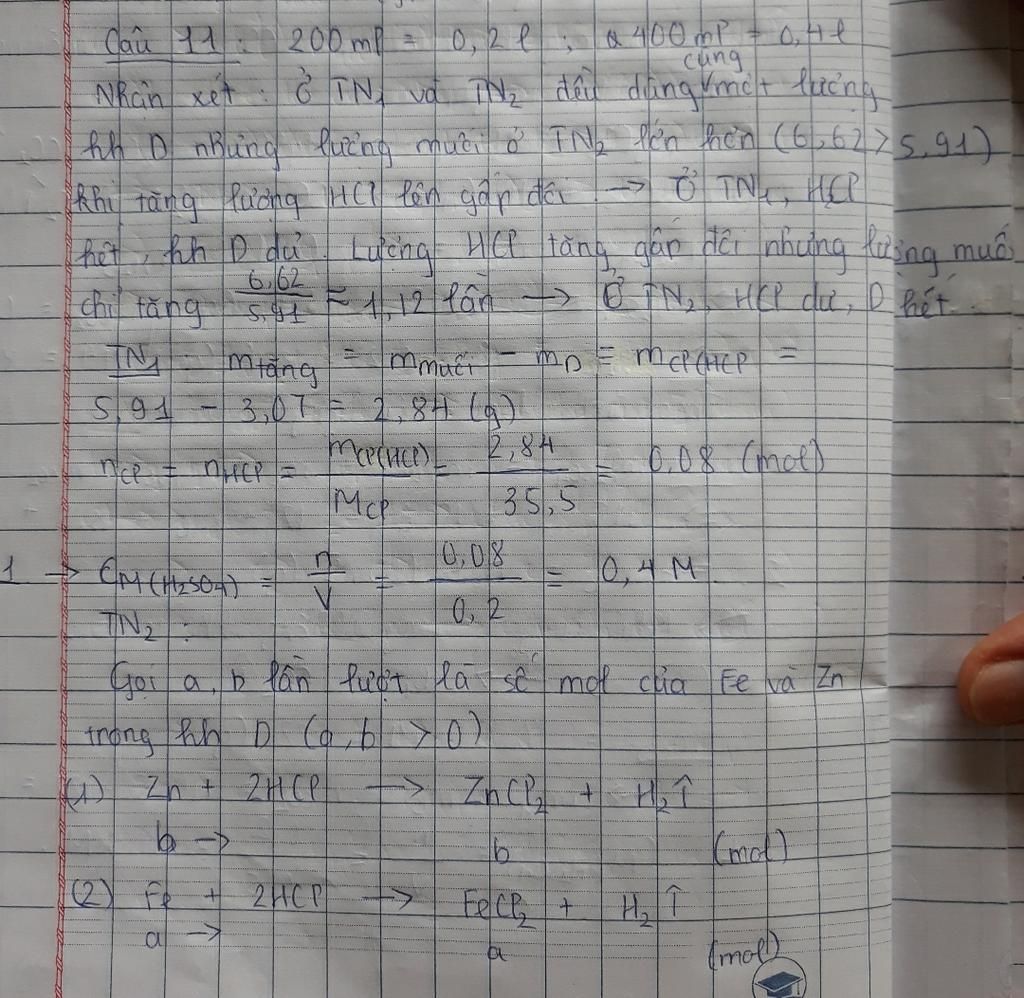 Câu 11: 200 ml = 0,2 l ; a 400 ml = 0,4 l
cùng
Nhận xét: Ở TN1 và TN2 đều dùng một lượng
hh D nhưng lượng muối ở TN2 lớn hơn (6,62 > 5,91)
khi tăng lượng HCl lên gấp đôi → Ở TN1, HCl
hết, hh D dư. Lượng HCl tăng gấp đôi nhưng lượng muối
chỉ tăng 6,62/5,91 ≈ 1,12 lần → Ở TN2, HCl dư, D hết.
TN1: m tăng = m muối - mD = mCl(HCl) =
5,91 - 3,07 = 2,84 (g)
nCl = nHCl = mCl(HCl)/MCl = 2,84/35,5 = 0,08 (mol)
1 → CM(H2SO4) = n/V = 0,08/0,2 = 0,4 M
TN2:
Gọi a, b lần lượt là số mol của Fe và Zn
trong hh D (a, b > 0)
(1) Zn + 2HCl → ZnCl2 + H2↑
b → b (mol)
(2) Fe + 2HCl → FeCl2 + H2↑
a → a (mol)